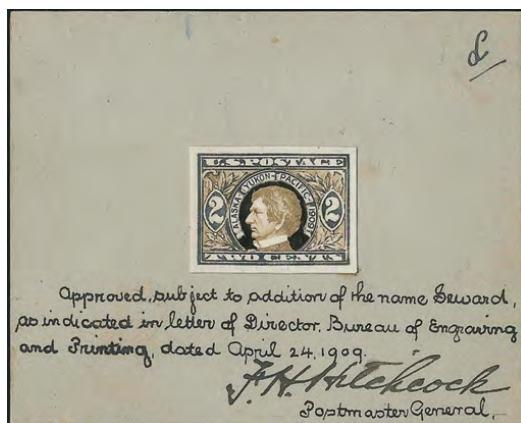 L
U.S. POSTAGE
ALASKA-YUKON-PACIFIC-1909
2 2
TWO CENTS
Approved, subject to addition of the name Seward,
as indicated in letter of Director, Bureau of Engraving
and Printing, dated April 24, 1909.
F.H. Hitchcock
Postmaster General.